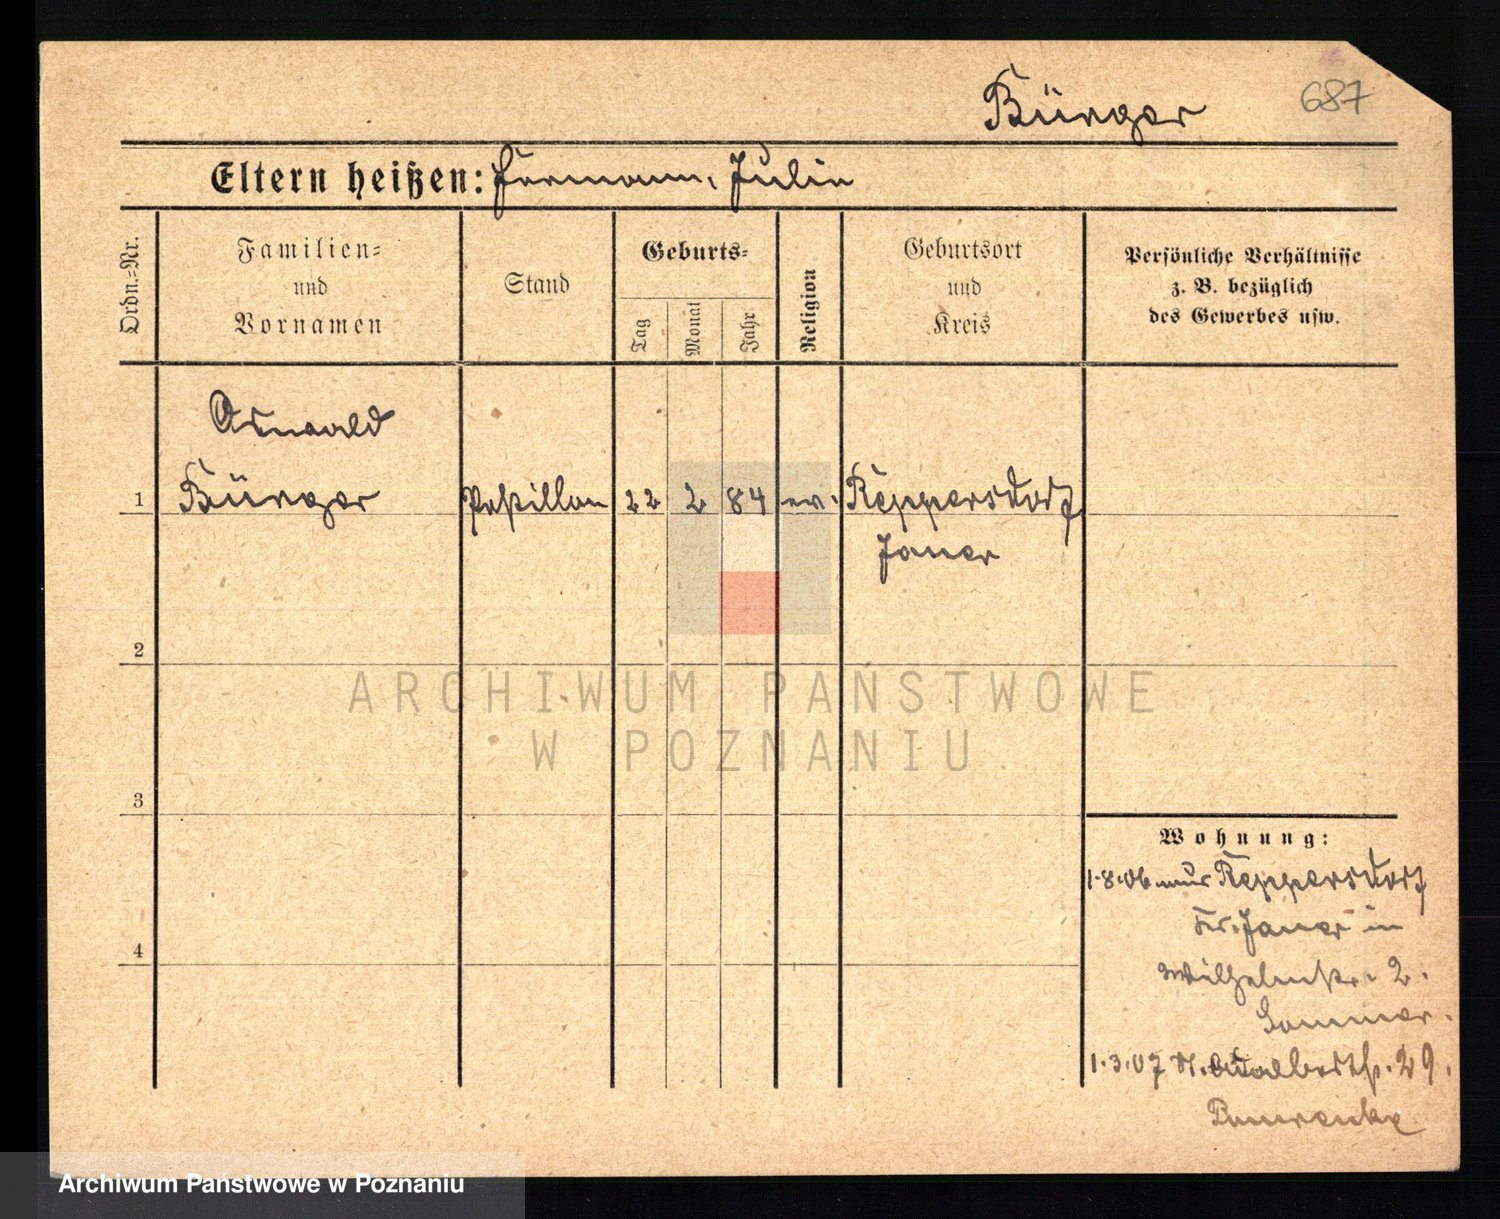 Bürger
687
Eltern heißen: Hermann, Julie
Ordn.-Nr.
Familien-
und
Vornamen
Stand
Geburts-
Tag
Monat
Jahr
Religion
Geburtsort
und
Kreis
Persönliche Verhältnisse
z. B. bezüglich
des Gewerbes usw.
Oswald
1 Bürger Postillon 22 2 84 ev. Reppersdorf
Jauer
2
3
4
Wohnung:
1.8.06 aus Reppersdorf
Kr. Jauer in
Wilhelmstr. 2.
1.3.07 St. Adalbertstr. 29.
ARCHIWUM PAŃSTWOWE
W POZNANIU
Archiwum Państwowe w Poznaniu